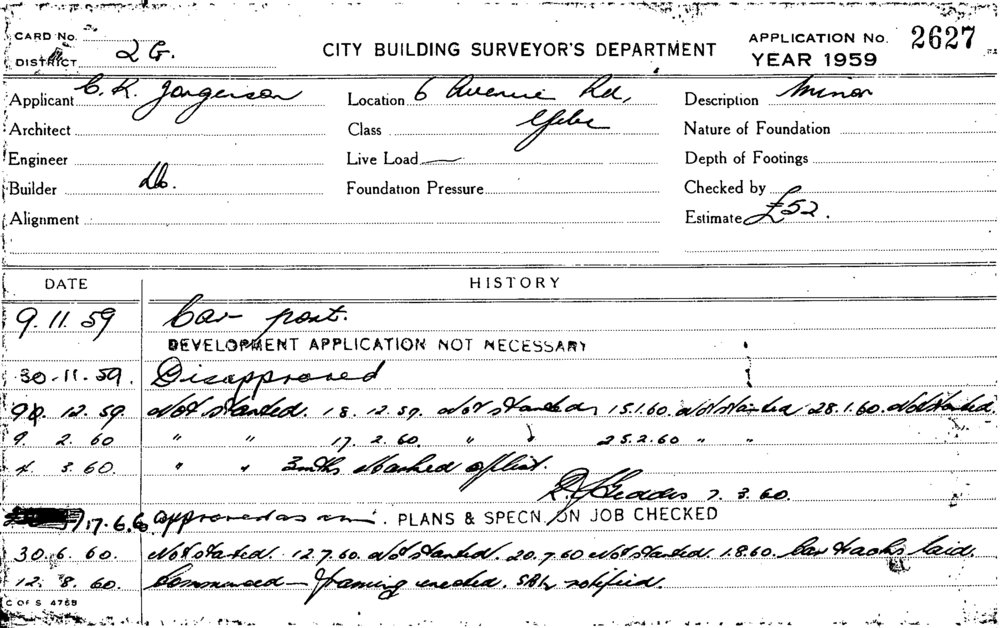 CARD No.
DISTRICT 2 G.
CITY BUILDING SURVEYOR'S DEPARTMENT
APPLICATION No. 2627
YEAR 1959
Applicant C. K. Jorgerson Location 6 Avenue Rd, Description Minor
Architect Class Glebe Nature of Foundation
Engineer Live Load — Depth of Footings
Builder Do. Foundation Pressure Checked by
Alignment Estimate £52.
DATE HISTORY
9. 11. 59 Car port.
DEVELOPMENT APPLICATION NOT NECESSARY
30-11-59. Disapproved
9. 12. 59 Not started. 18. 12. 59. Not started 15.1.60. Not started 28.1.60. Not started.
9 2. 60 " " 17. 2. 60. " " 25.2.60 " "
4. 3. 60. " " 3mths Marked off list.
Geddes 7. 3. 60.
17.6.60 approved as am. PLANS & SPECN. ON JOB CHECKED
30. 6. 60. Not started. 12.7.60. Not started. 20.7.60 Not started. 1.8.60. Car tracks laid.
12. 8. 60. Commenced — framing erected. notified.
C OF S 4768